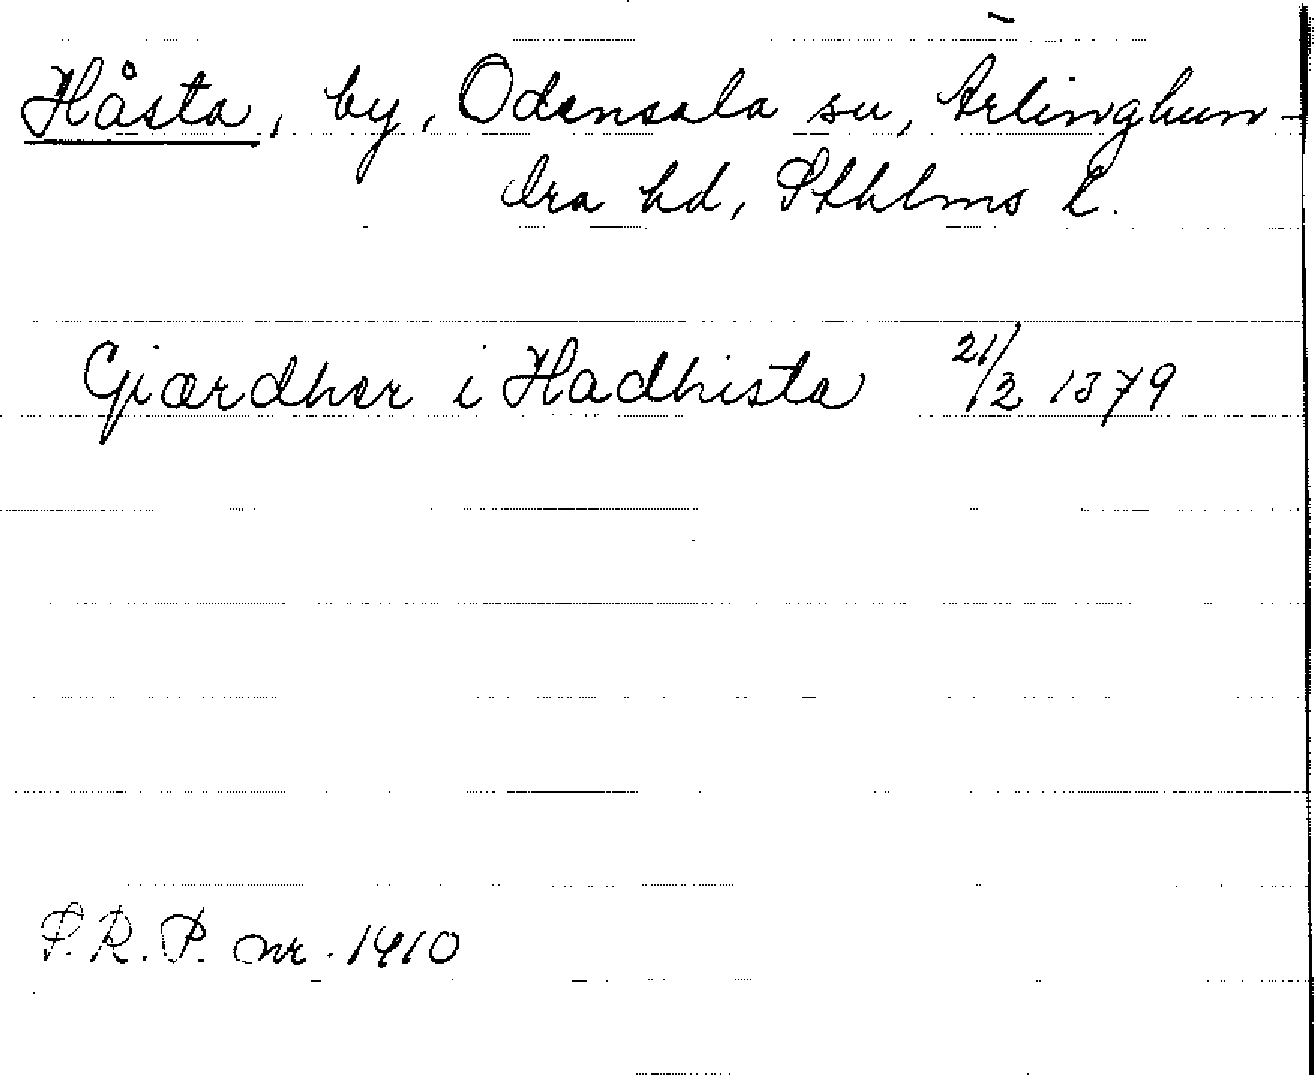 Håsta, by, Odensala sn, Ärlinghun-
dra hd, Sthlms l.
Gjærdher i Hadhista 21/2 1379
S.R.P. nr. 1410